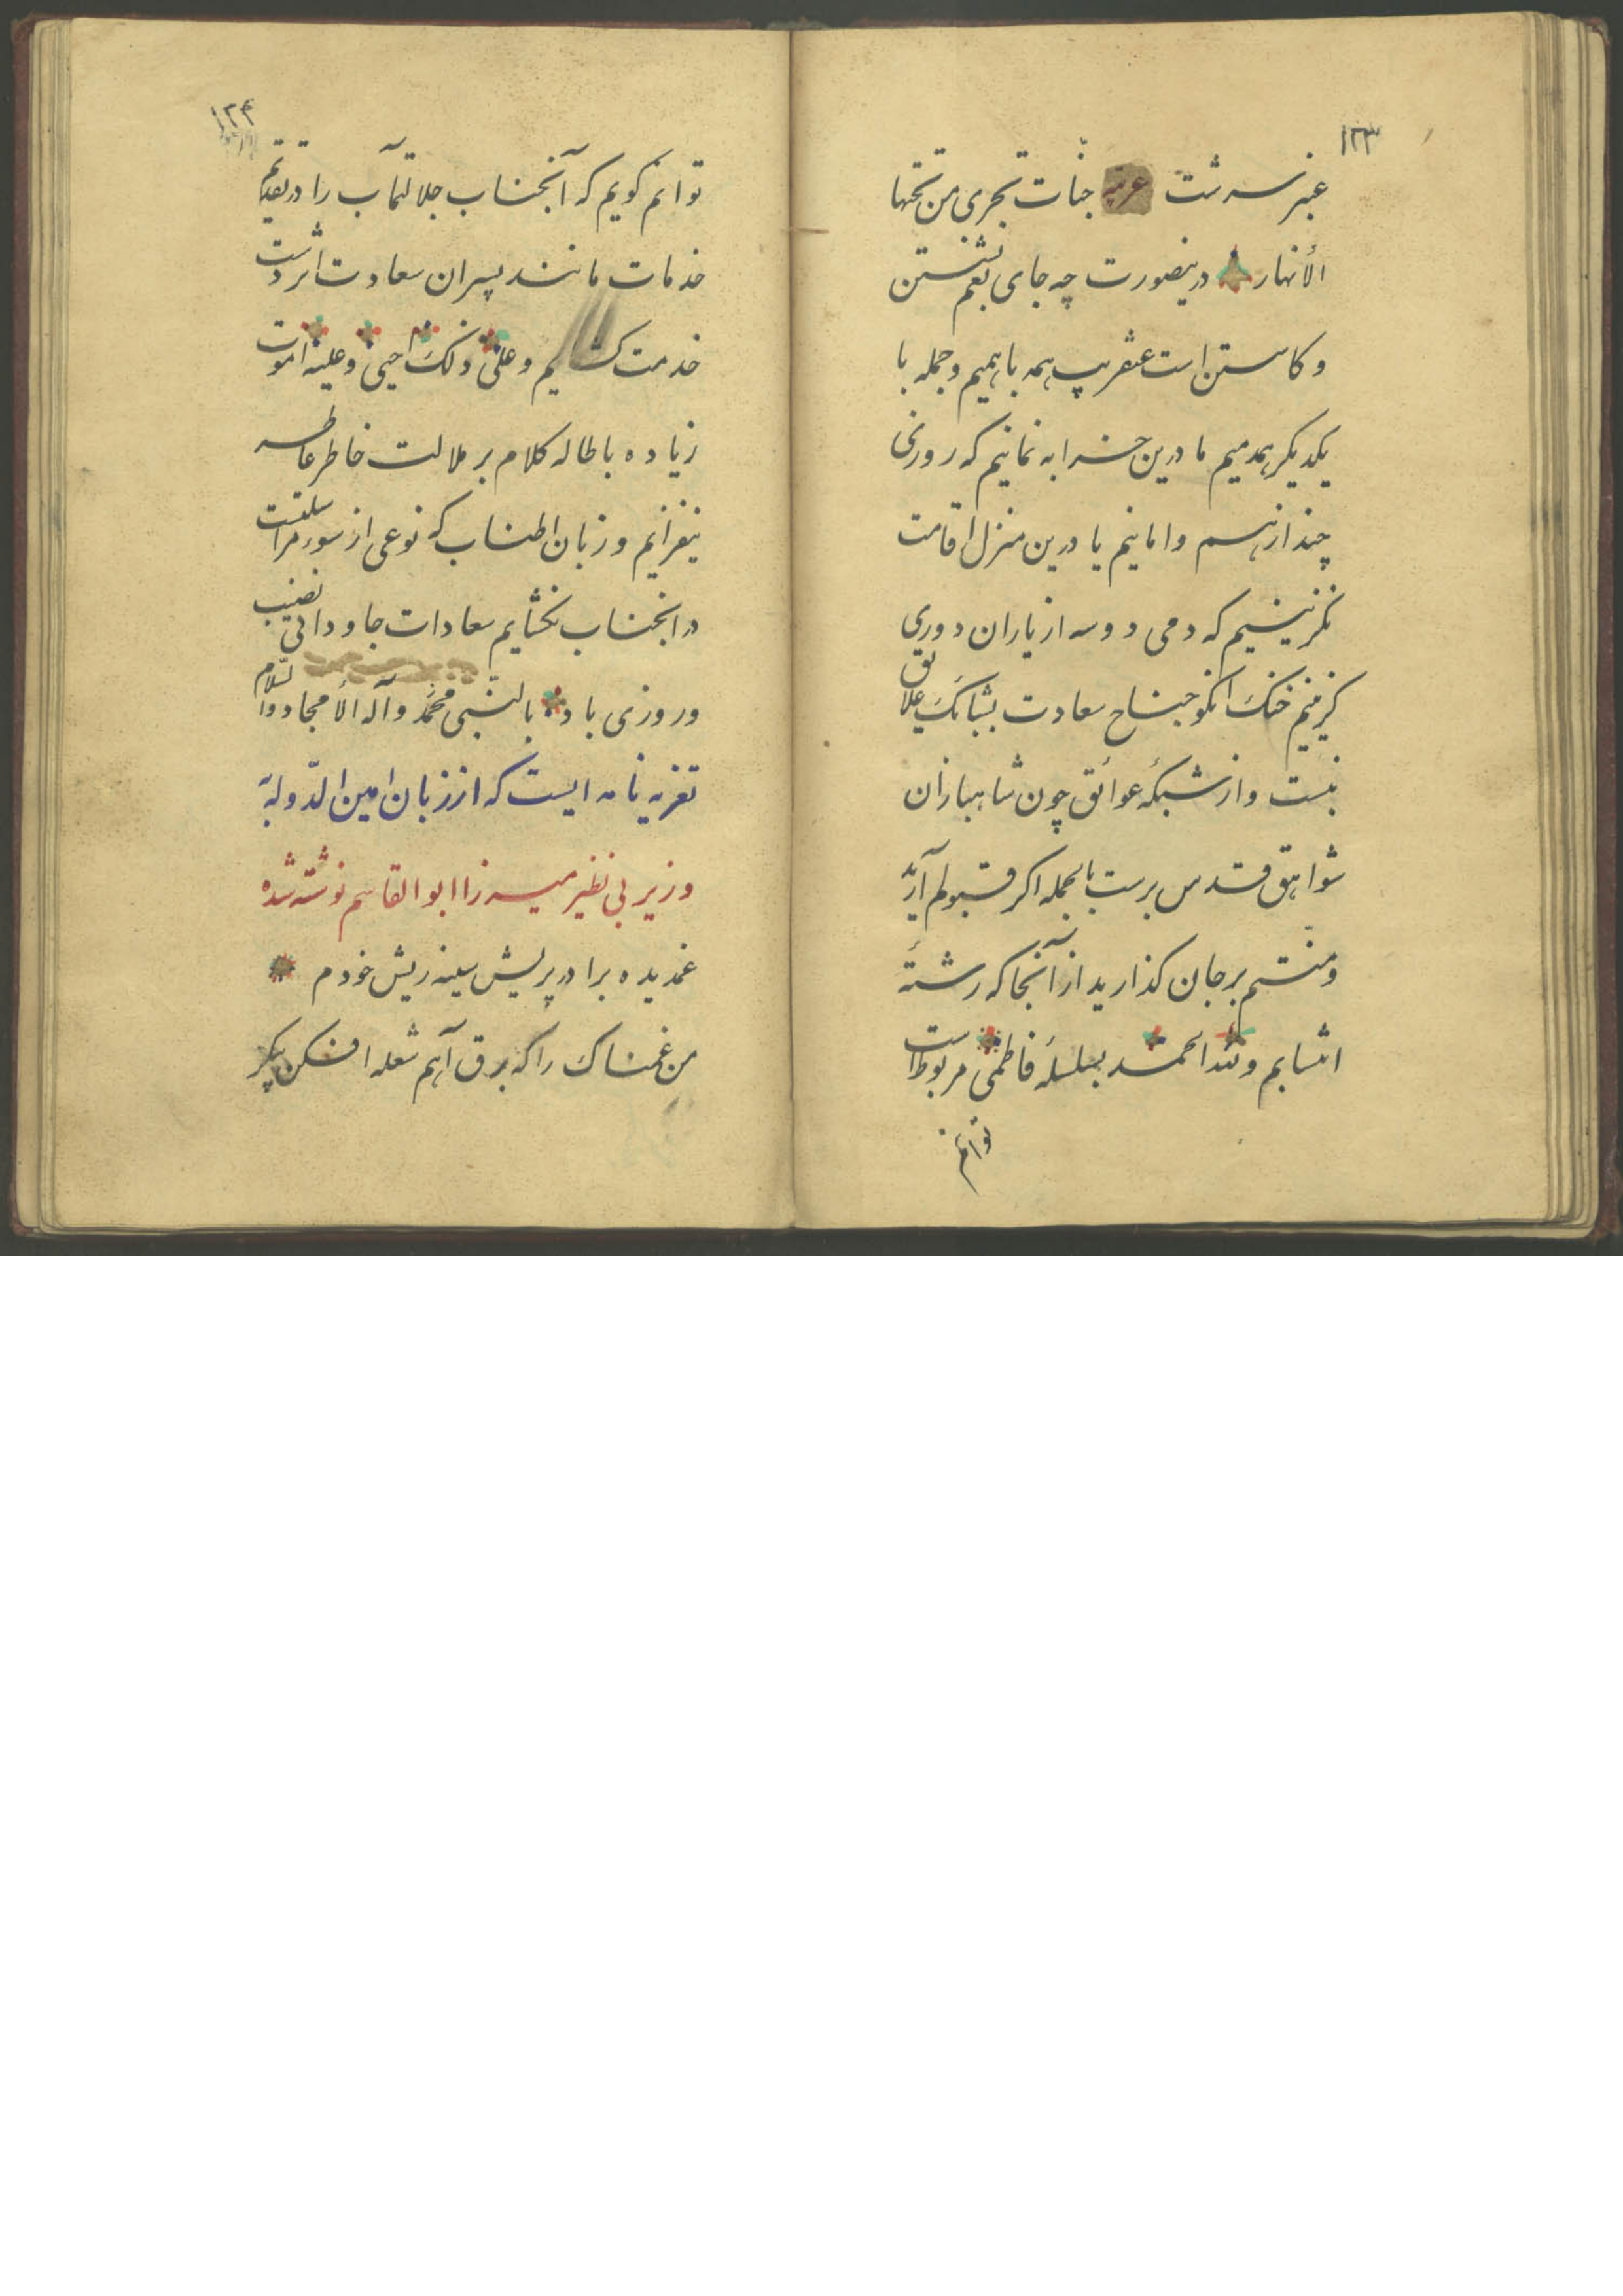 ۱۲۳
عنبر سرشت عربیه جنّات تجری من تحتها
الأنهار درینصورت چه جای بغم نشستن
و کاستن است عنقریب همه باهمیم و جمله با
یکدیگر همدمیم ما درین خرابه نمانیم که روزی
چند از هم وامانیم یا درین منزل اقامت
نگزینیم که دمی دو سه از یاران دوری
گزینیم خنک آنکو جناح سعادت بشبانک علایق
نبست و از شبکهٔ عوائق چون شاهبازان
شواهق قدس برست بالجمله اگر قبولم آرید
و منتم بر جان گذارید از آنجا که رشتهٔ
انتسابم ولله الحمد بسلسلهٔ فاطمی مربوط است
توانم
۱۲۴
توانم گویم که آنجناب جلالتمآب را در تقدیم
خدمات مانند پسران سعادت اثر دست
خدمت گشایم و علی ذلک احیی و علیه اموت
زیاده باطاله کلام بر ملالت خاطر عاطر
نیفزایم و زبان اطناب که نوعی از سوء مراسلتست
در آنجناب نگشایم سعادات جاودانی نصیب
و روزی باد بالنّبی محمّد و آله الأمجاد والسّلام
تعزیه نامه ایست که از زبان امین الدّوله به
وزیر بی نظیر میرزا ابوالقاسم نوشته شده
غمدیده برادر پریش سینه ریش خودم
من غمناک را که برق آهم شعله افکن پیکر